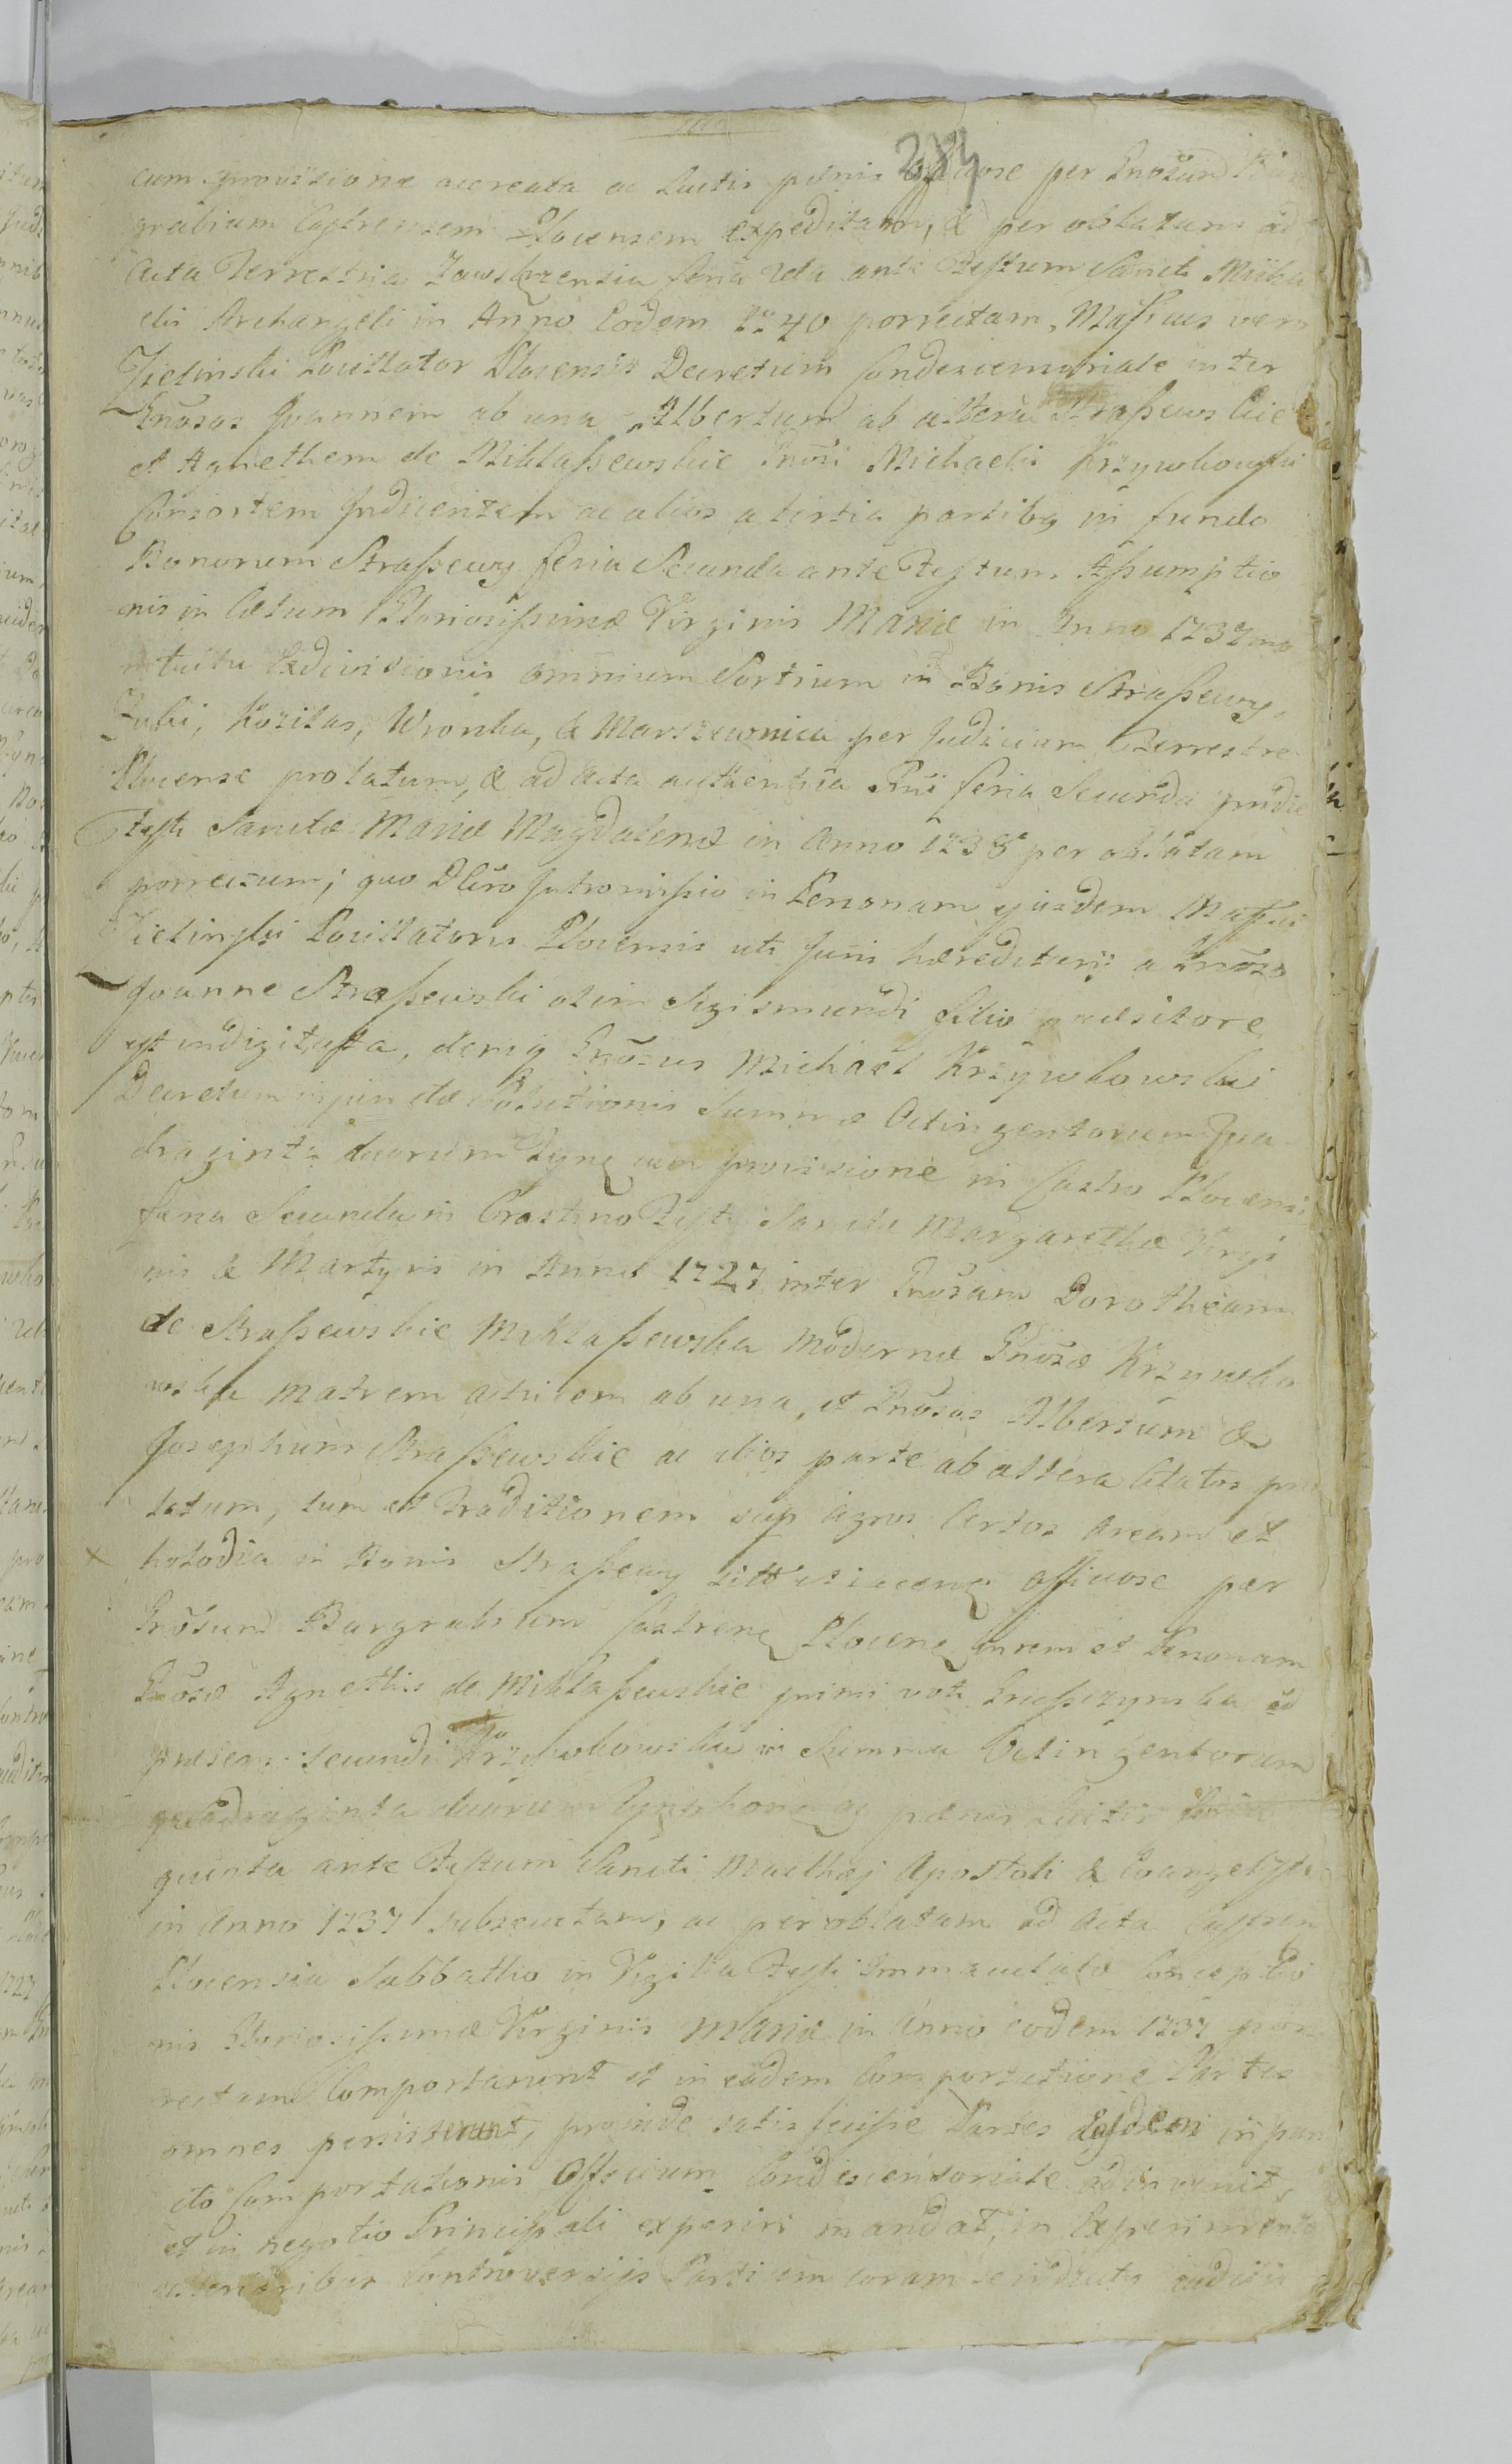 284
cum provisione accreata ac luctis pænis officiose per Gnosum Bur
grabium Castrensem Plocensem expeditam, & per oblatam ad
Acta Terrestria Zawskrzensia feria 2da ante Festum Sancti Micha
elis Archangeli in Anno Eodem 1740 porrectam, Mafficus vero
Zielinski Pocillator Plocensis Decretum Condescensoriale inter
Gnosos Joannem ab una, Albertum ab altera Straszewskie
et Agnethem de Miklaszewskie Gnosi Michaelis Krzywkowski
Consortem Judicentem ac alios a tertia partibq in fundo
Bonorum Straszewy feria Secunda ante Festum Assumptio
nis in Cælum Gloriosissimæ Virginis Mariæ in Anno 1737mo
intuitu Exdivisionis omnium Sortium in Bonis Straszewy,
Zuki, Kozilas, Wronka, & Marszewnica per Judicium Terrestre
Plocense prolatum, & ad Acta authentica Sui feria Secunda pridie
Festi Sanctæ Mariæ Magdalenæ in Anno 1738 per oblatam
porrectum; quo Dcro Intromissio in Personam ejusdem Maffici
Zielinski Pocillatoris Plocensis uti Juris hæreditarij a Gnoso
Joanne Straszewski olim Sigismundi filio quæsitore
est indigitata, deniq Gnosus Michael Krzywkowski
Decretum injunctæ Solutionis Summæ Octingentorum Qua
draginta duorum cum provisione in Castro Plocensi
feria Secunda in Crastino Festi Sanctæ Margarethæ Virgi
nis & Martyris in Anno 1727 inter Gnosam Dorotheam
de Straszewskie Miklaszewska modernæ Gnosæ Krzywko
wska Matrem actricem ab una, et Gnosos Albertum &
Josephum Straszewskie ac alios parte ab altera Citatos pro
latum, tum et Traditionem sup agros Certos Aream et
in Bonis Straszewy officiose per
Gnosum Burgrabium Castrenq Plocenq in rem et Personam
Gnosæ Agnethis de Miklaszewskie primi voti ad
præsens secundi Krzywkowska in Summa Octingentorum
quadraginta duorum ac pænis luitis feria
quinta ante Festum Sancti Matthæj Apostoli & Evangelystæ
in Anno 1737 subsecutam, ac per oblatam ad Acta Castren
Plocensia Sabbatho in Vigilia Festi Immaculatæ Conceptio
nis Gloriosissimæ Virginis Mariæ in Anno eodem 1737 por
rectam Comportarunt et in eadem Comportatione Partes
omnes persisterunt, proinde satis fecisse Partes Easdem in pun
cto Comportationis Officium Condescensoriale adinvenit,
et in negotio Principali experiri mandat, in Experimento
ulterioribus Controversijs Partium coram se